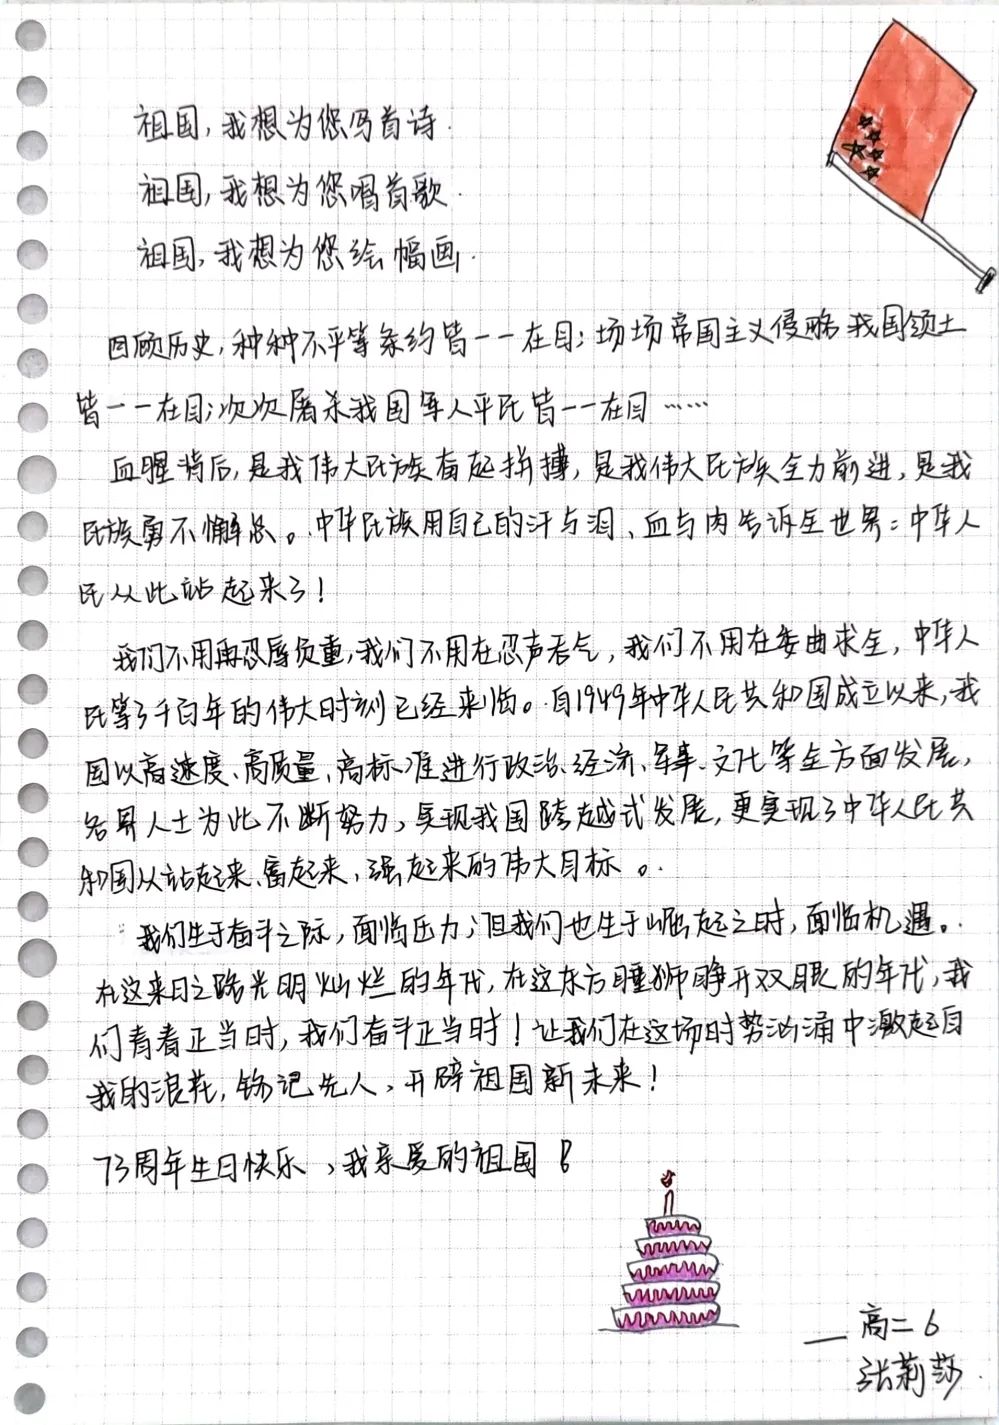 祖国，我想为您写首诗．
祖国，我想为您唱首歌．
祖国，我想为您绘幅画．
回顾历史，种种不平等条约皆一一在目；场场帝国主义侵略我国领土
皆一一在目；次次屠杀我国军人平民皆一一在目……
血腥背后，是我伟大民族奋起拼搏，是我伟大民族全力前进，是我
民族勇不懈怠。中华民族用自己的汗与泪、血与肉告诉全世界：中华人
民从此站起来了！
我们不用再忍辱负重，我们不用在忍声吞气，我们不用在委曲求全，中华人
民等了千百年的伟大时刻已经来临。自1949年中华人民共和国成立以来，我
国以高速度、高质量、高标准进行政治、经济、军事、文化等全方面发展，
各界人士为此不断努力，实现我国跨越式发展，更实现了中华人民共
和国从站起来、富起来、强起来的伟大目标。
我们生于奋斗之际，面临压力；但我们也生于崛起之时，面临机遇。
在这来日之路光明灿烂的年代，在这东方睡狮睁开双眼的年代，我
们青春正当时，我们奋斗正当时！让我们在这场时势汹涌中激起自
我的浪花，铭记先人，开辟祖国新未来！
73周年生日快乐，我亲爱的祖国！
——高二6
张莉莎